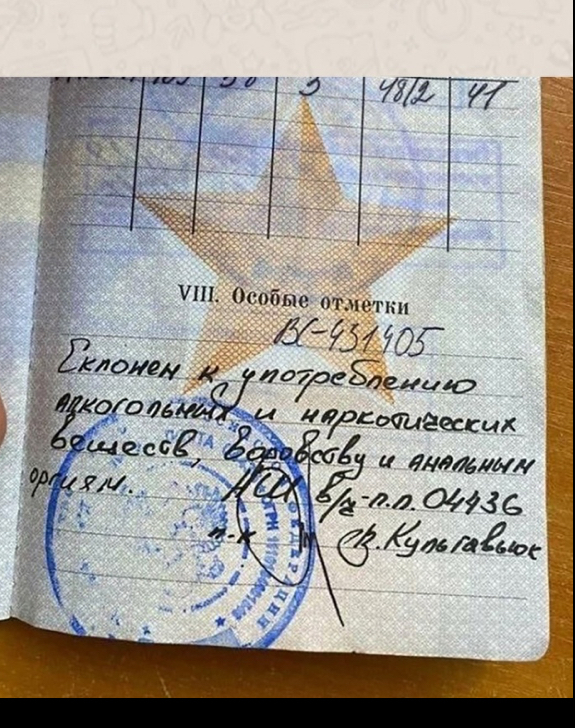 38 5 48/2 41
VIII. Особые отметки
ВС-431405
Склонен к употреблению
алкогольных и наркотических
веществ, воровству и анальным
оргиям. НШ в/ч-п.п. 04436
п-к Ф. Кульгавьюк